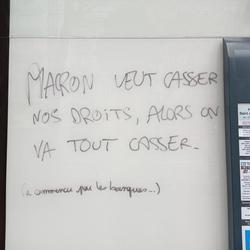 MACRON VEUT CASSER
NOS DROITS, ALORS ON
VA TOUT CASSER.
(à commencer par les banques...)